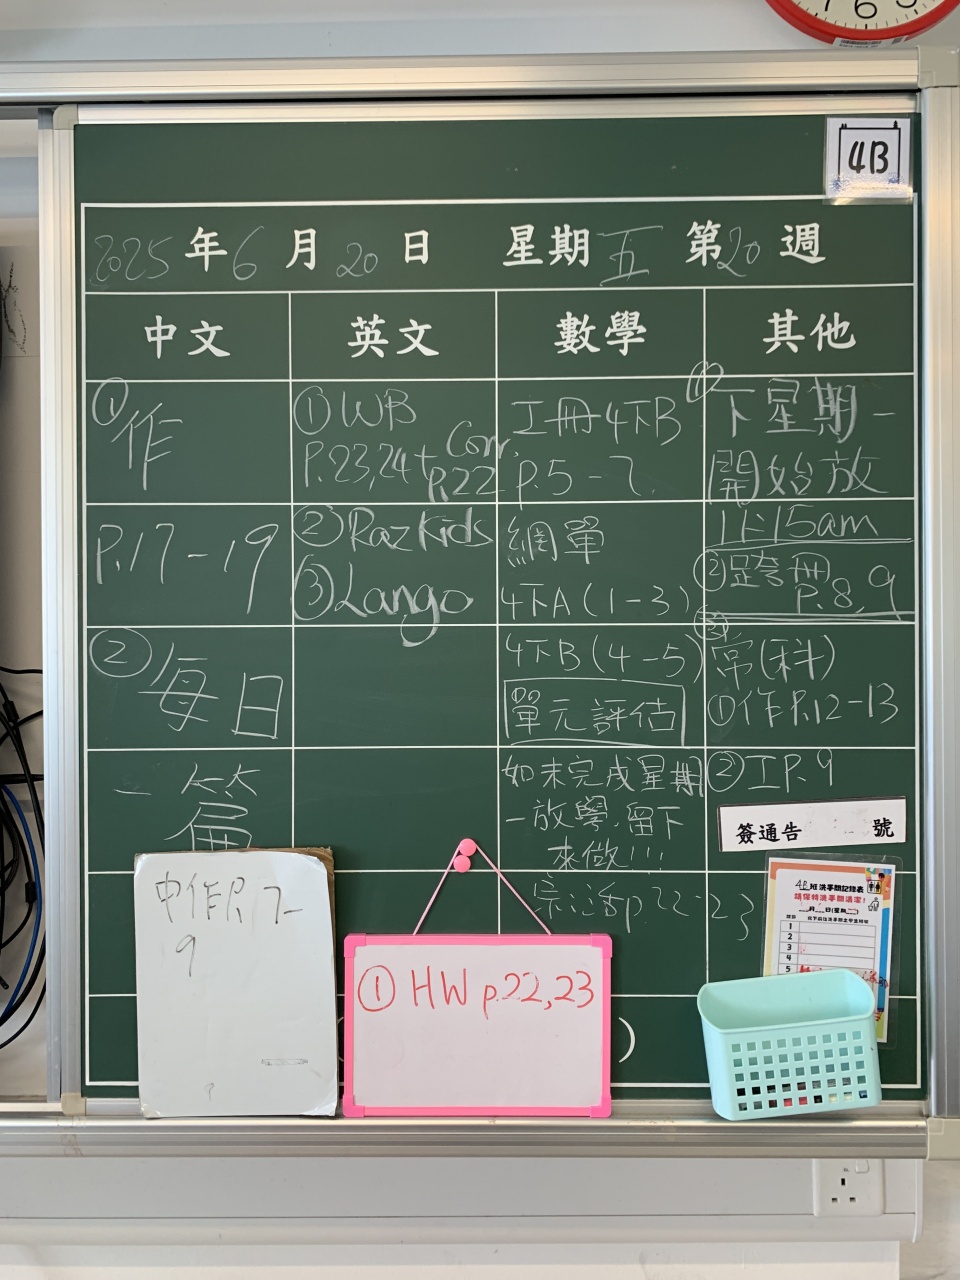 4B
2025年6月20日 星期五 第20週
中文
①作
P.17-19
②每日
一篇
英文
①WB
P.23,24+Corr.
P.22
②RazKids
③Lango
數學
工冊4下B
P.5-7
網單
4下A(1-3)
4下B(4-5)
單元評估
如未完成星期
一放學,留下
來做!!!
其他
①下星期一
開始放
11:15am
②跨冊
P.8,9
③常(科)
①作P.12-13
②工P.9
簽通告 號
P.22-23
中作P.7-
9
①HW p.22,23
)
4B班洗手間記錄表
請保持洗手間清潔!
月 日(星期 )
1
2
3
4
5